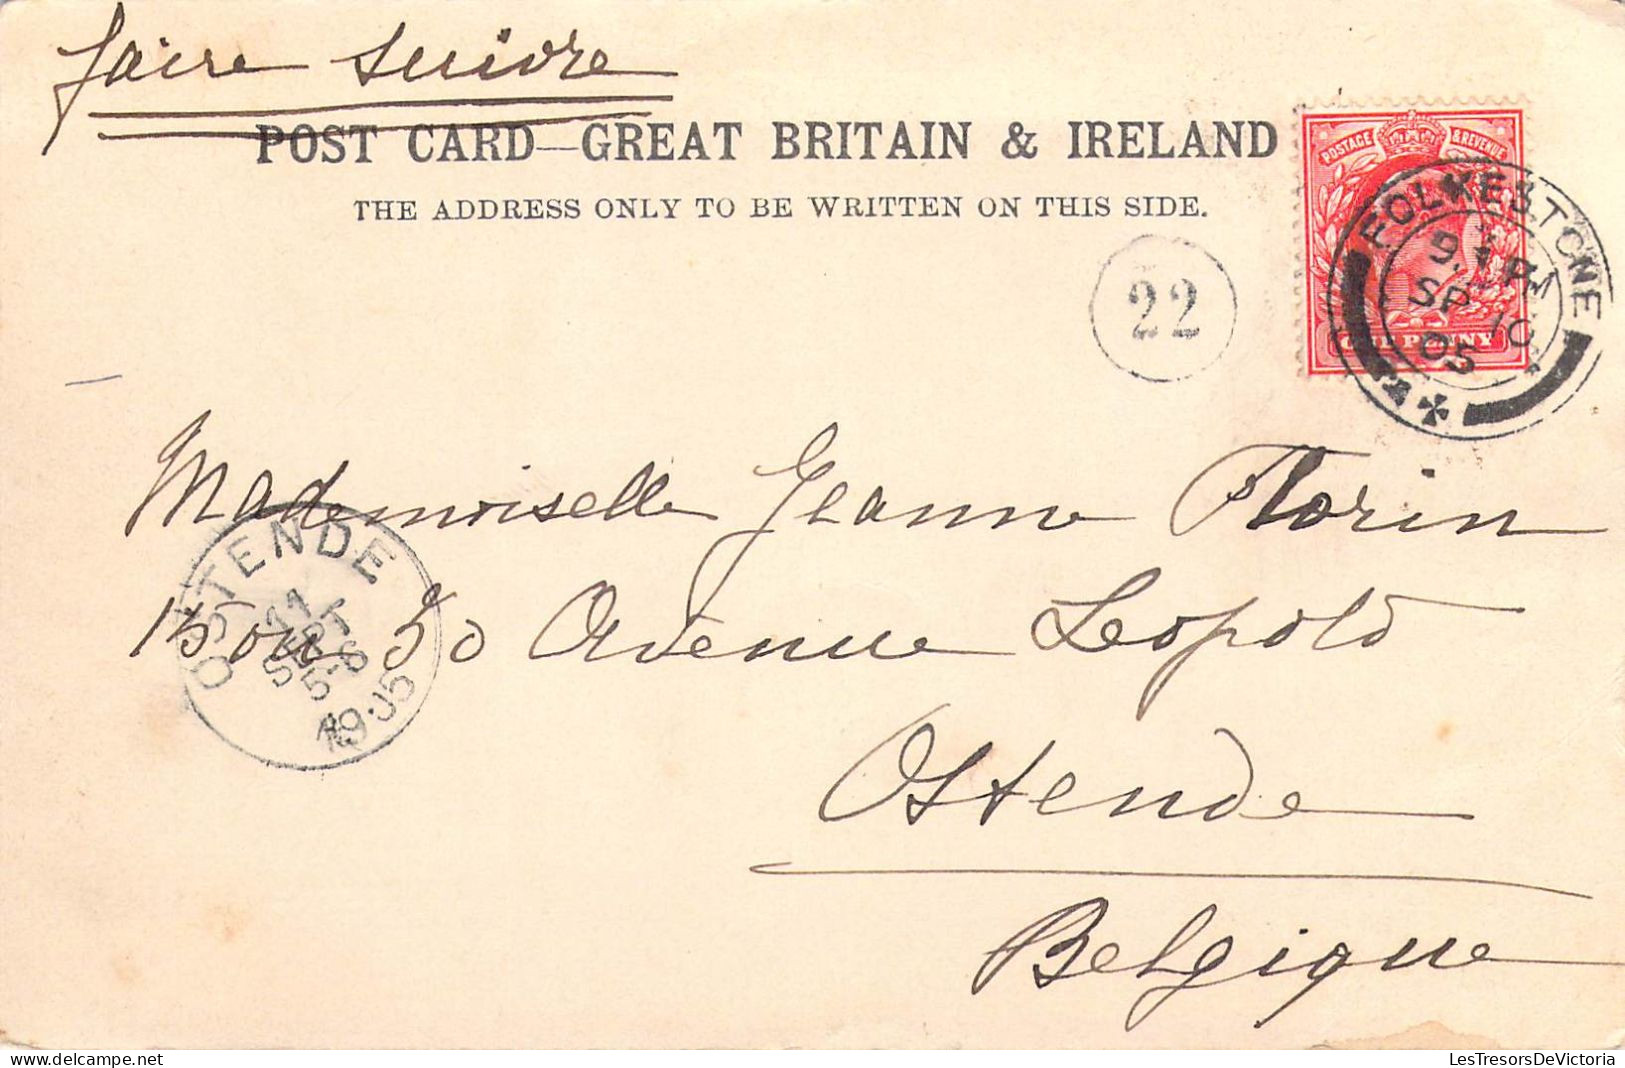 faire suivre
POST CARD—GREAT BRITAIN & IRELAND
THE ADDRESS ONLY TO BE WRITTEN ON THIS SIDE.
POSTAGE & REVENUE
ONE PENNY
FOLKESTONE
PM
SP 10
05
22
Mademoiselle Jeanne Florin
15 ou 50 Avenue Leopold
Ostende
Belgique
OSTENDE
11
SEPT
5-6
1905
LesTresorsDeVictoria